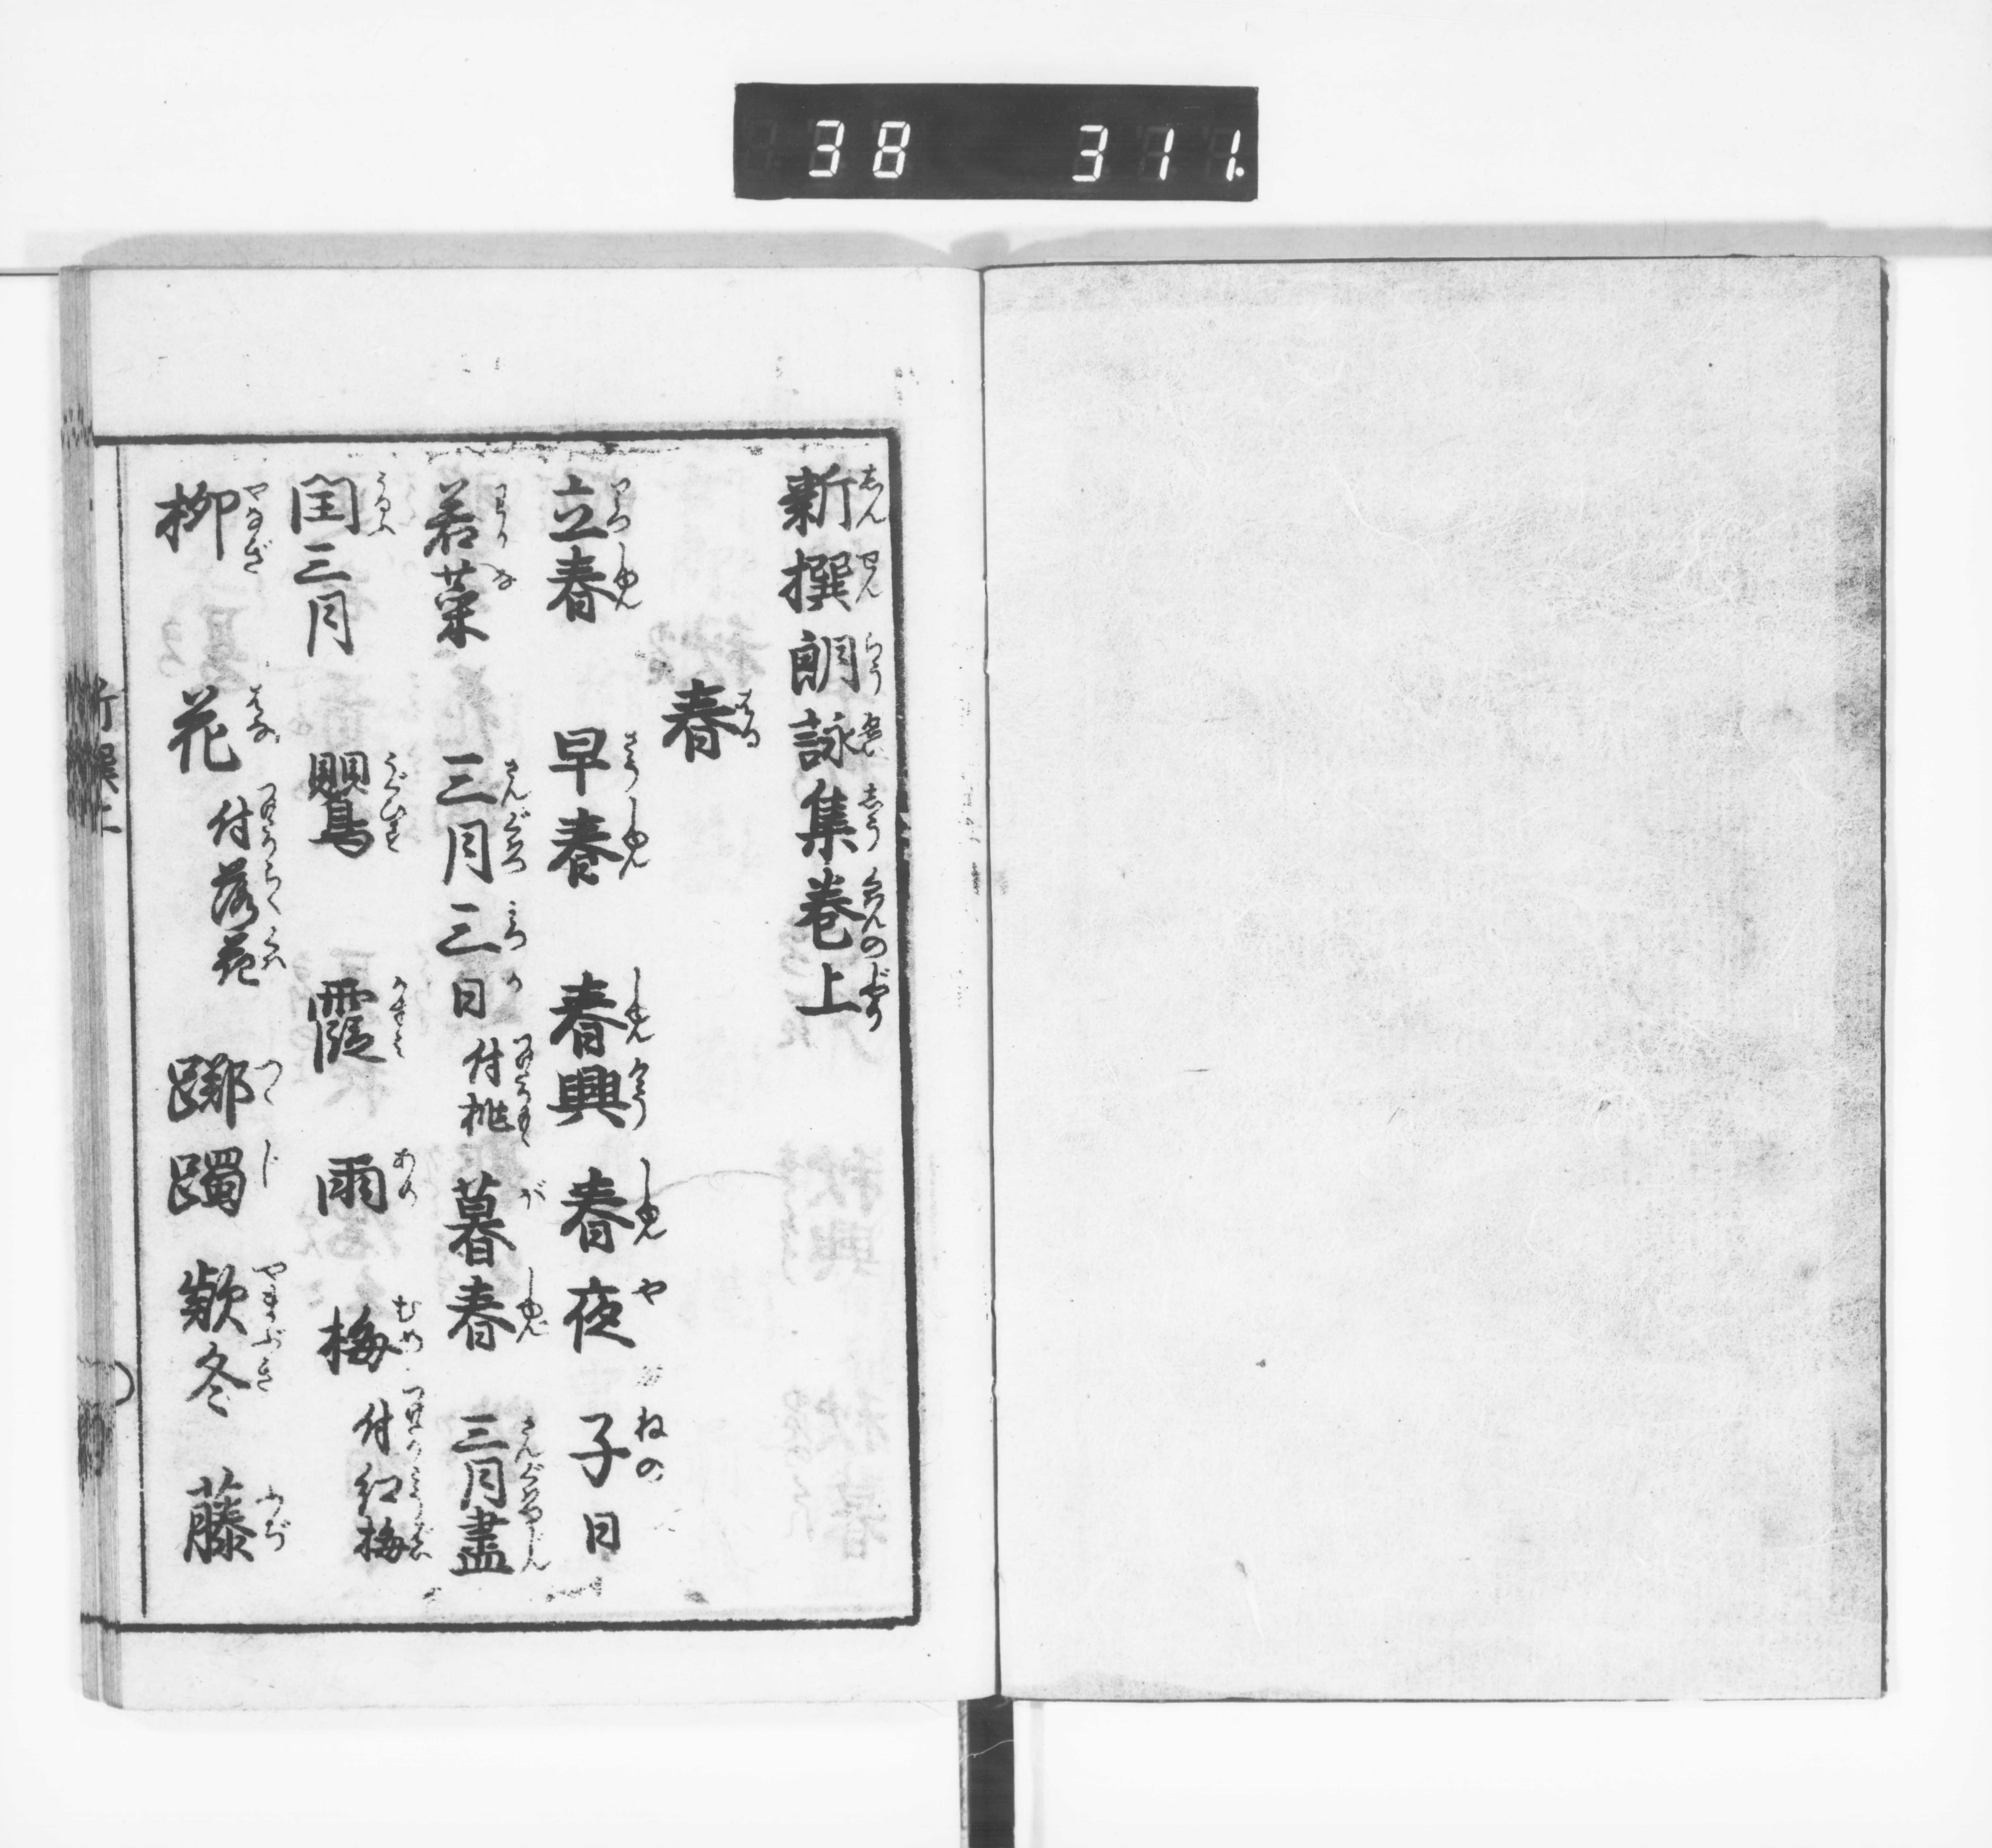 38 311.
新撰朗詠集巻上
春
立春 早春 春興 春夜 子日
若菜 三月三日 付桃 暮春 三月盡
閏三月 鸎 霞 雨 梅 付紅梅
柳 花 付落花 躑躅 欵冬 藤